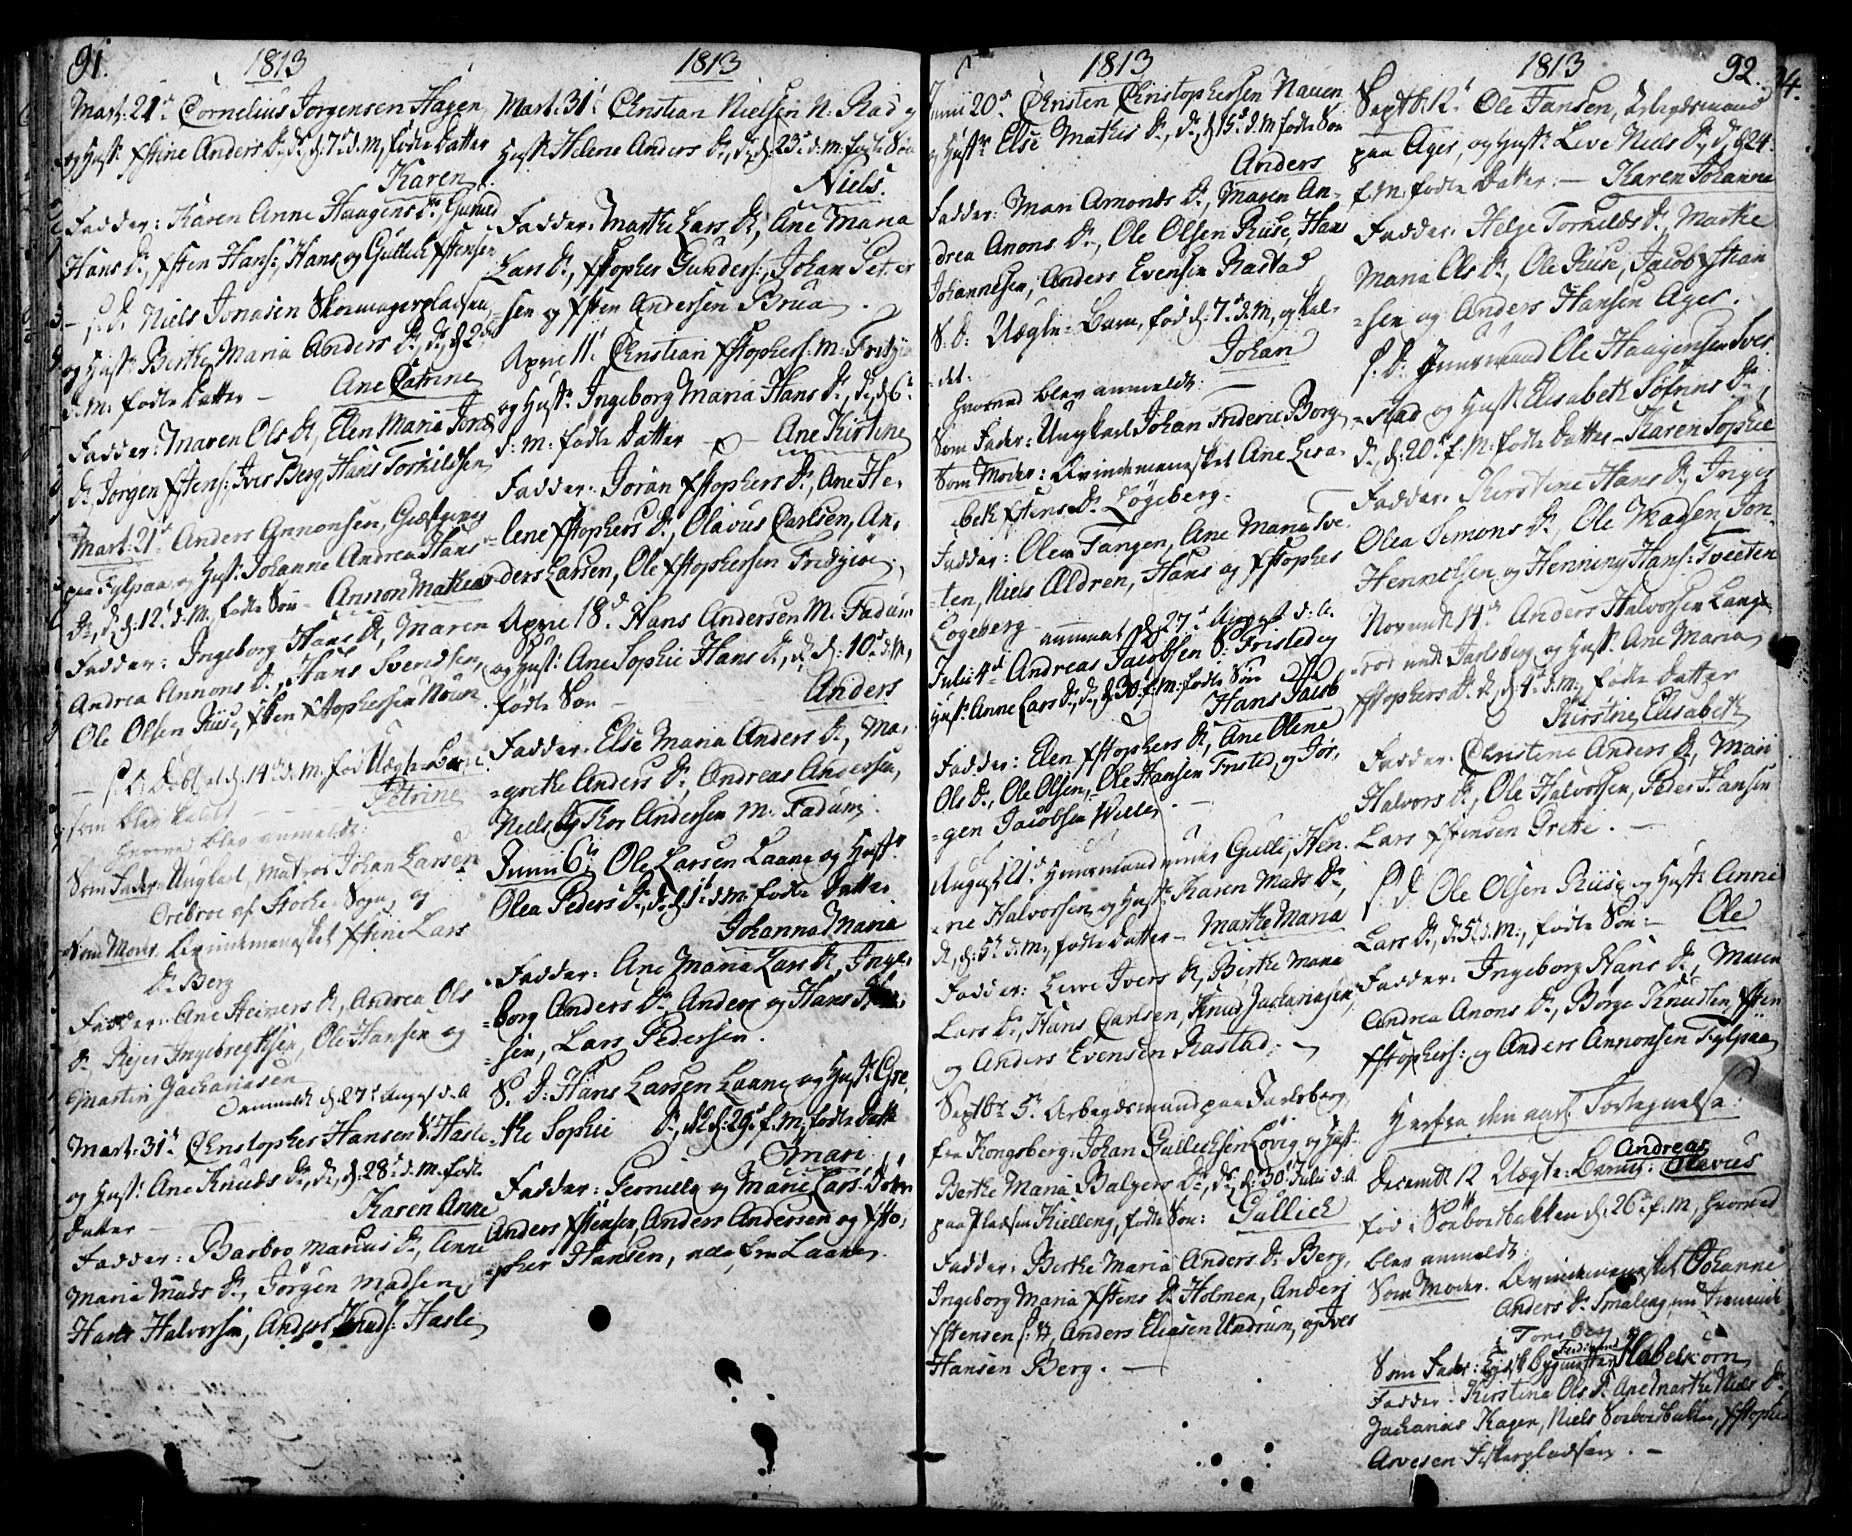 91.
1813
Mart: 21de Cornelius Jorgensen Hagen
og Hust: Xstine Anders Dr, D. d: 7d d.M, fødte Datter
Karen
Fadder: Karen Anne Haagens Dr, Gunild
Hans Dr, Xsten Hans: Hans og Gullich Xstensen
S: D: Niels Jonasen Skomagerpladsen
og Hust: Berthe Maria Anders Dr, D, d 2d
d.M. fødte Datter - Ane Catrine
Fadder: Maren Ols Dr, Elen Maria
Dr, Jorgen Xstens: Iver Berg, Hans Torkildsen
Mart: 21d Anders Annonsen, Giæstgiver
paa Fylpaa og Hust: Johanne Andrea Hans
Dr, D. d: 12t d.M. fødte Søn - Annon Mathias
Fadder: Ingeborg Hans Dr, Maren
Andrea Annons Dr, Hans Svendsen,
Ole Olsen Ruse, Xsten Xstophersen Nouen
- S: D: Døbt et d: 14de d.M. fød Uægte-Barn
som blev kaldt - Petrine
hvorved blev anmeldt:
Som Fader: Ungkarl, Matros Johan Larsen
Orebroe af Stocke-Sogn, og
Som Moder. Qvindemennesket Xstine Lars
Dr Berg
Fadder: Ane Heiners Dr, Andrea Ols
Dr Rejer Ingebregtsen, Ole Hansen og
Martin Zachariasen
anmeldt d 27d August d.A
Mart: 31te Christopher Hansen V: Hasle
og Hust: Ane Knuds Dr, Dr, d: 28d d.M. fødte
Datter Karen Anne
Fadder: Barbro Marcus Dr, Anne
Maria Mads Dr, Jørgen Madsen,
Hans Halvorsen, Anders Knuds: Hasle
1813
Mart: 31te Christian Nielsen N: Rad og
Hust: Helene Anders Dr, D: d: 23de d.M. fødte Søn
Niels.
Fadder: Marthe Lars Dr, Ane Maria
Lars Dr, Xstopher Gunders: Johan Peter
=sen og Xsten Andersen Brua.
April 11te Christian Xstophers: M: Fridyen
og Hust: Ingeborg Maria Hans Dr, D, d 6te
d: M: fødte Datter - Ane Kirstine
Fadder. Joran Xstophers Dr, Ane He-
lene Xstophers Dr, Olavus Carlsen, An-
ders Larsen, Ole Xstophersen Fridyen.
April 18de Hans Andersen M: Fadum
og Hust: Ane Sophie Hans Dr, D d: 10d d.M.
fødte Søn - Anders
Fadder. Else Maria Anders Dr, Mar-
=grethe Anders Dr, Andreas Andersen,
Niels og Thor Andersen M: Fadum.
Junii 6te Ole Larsen Laane og Hust:
Olea Peders Dr, D: d 1t d.M fødte Datter
Johanna Maria
Fadder: Ane Maria Lars Dr, Inge-
=borg Anders Dr Anders og Hans
=sen, Lars Pedersen.
S. D: Hans Larsen Laane og Hust: Gre-
the Sophie Dr, D d: 29d f.M. fødte Datter
Mari
Fadder: Pernille og Marie Lars Døtre
Anders Xstensen, Anders Andersen og Xsto-
=pher Hansen, alle fra Laane.
1813
Junii 20de Christen Christophersen Nauen
og Hustr: Else Mathis Dr, D, d 15d d.M fødte Søn
Anders
Fadder: Mari Amonds Dr, Maren An-
drea Anons Dr, Ole Olsen Ruse, Hans
Johannesen, Anders Evensen Rastad
S. D: Uægte-Barn, fød d: 7d d.M. og kal-
=det. Johan
hvorved blev anmeldt:
Som Fader: Ungkarl Johan Frideric Borg
Som Moder: Qvindemennesket Ane Lisa-
beth Xstens Dr Løgeberg.
Fadder: Olea Tangen, Ane Maria Tve-
=ten, Niels Ældren, Hans og Xstopher
Løgeberg. anmeldt d 27d August d: A.
Julii 4d Andreas Jacobsen S: Fristed og
Hust: Anne Lars Dr, D, d 30t f.M. fødte Søn
Hans Jacob
Fadder: Elen Xstophers Dr, Ane Olene
Ols Dr, Ole Olsen, Ole Hansen Fristed, og Jør-
=gen Jacobsen Welle.
August 21d Huusmand under Gulli, Hen-
=ric Halvorsen og Hust: Karen Mads Dr,
D, d: 5te d.M, fødte Datter - Marthe Maria
Fadder: Leive Ivers Dr, Berthe Maria
Lars Dr, Hans Carlsen, Knud Zachariasen,
og Anders Evensen Rastad.
Septbr 5te Arbeydsmand paa Jarlsberg,
fra Kongsberg, Johan Gullichsen Løvig og Hust:
Berthe Maria Balzers Dr, D, d: 30t Julii d.A.
paa Pladsen Kielleng, fødte Søn: Gullich
Fadder: Berthe Maria Anders Dr Berg,
Ingeborg Maria Xstens Dr Holmen, Anders
Xstensen, Anders Eliasen Undrum, og Iver
Hansen Berg.
1813
92.
Septbr: 12t Ole Jansen, Arbeydsmand
paa Ager, og Hust: Leve Niels Dr, D, d 24
f.M: fødte Datter: - Karen Johanne
Fadder. Helge Torkilds Dr, Marthe
Maria Ols Dr, Ole Ruse, Jacob Xstian
=sen og Anders Hansen Ager.
S: D: Huusmand Ole Haagensen Iver-
=stad og Hust: Elisabeth Sofrens Dr,
D, d: 20d f. M. fødte Datter - Karen Sophie
Fadder. Kirstine Hans Dr, Inger
Olea Simons Dr, Ole Madsen, Jon
Henrichsen og Henning Hans: Tveeten
Novembr 14de Anders Halvorsen Lang-
=rød und: Jarlsberg og Hust: Ane Maria
Xstophers Dr, D, d 4d d.M. fødte Datter
Kirstine Elisabeth
Fadder. Christine Anders Dr, Mari
Halvors Dr, Ole Halvorsen, Peder Hansen
Lars Xstensen Grette.
S: D: Ole Olsen Ruse og Hust: Anne
Lars Dr, d. 5te d:M:, fødte Søn: - Ole
Fadder. Ingeborg Hans Dr, Maren
Andrea Anons Dr, Børge Knudsen, Xsten
Xstophers: og Anders Annonsen Fylpaa
Herfra den aarl: Fortegnelse.
Decembr 12 Uægte-Barn: Andreas Olavus
fød i Sørbordbakken d: 26d f.M, hvorved
blev anmeldt:
Som Moder. Qvindemennesket Johanne
Anders Dr Smaleng
i Tonsberg
Som Fader: Bygmester Ferdinand Habelkorn
Fadder. Kirstine Ols Dr, Ane Marthe Niels Dr
Zacharias Kager, Niels Sørbordbakken, Xstopher
Arvesen Fiskerpladsen.